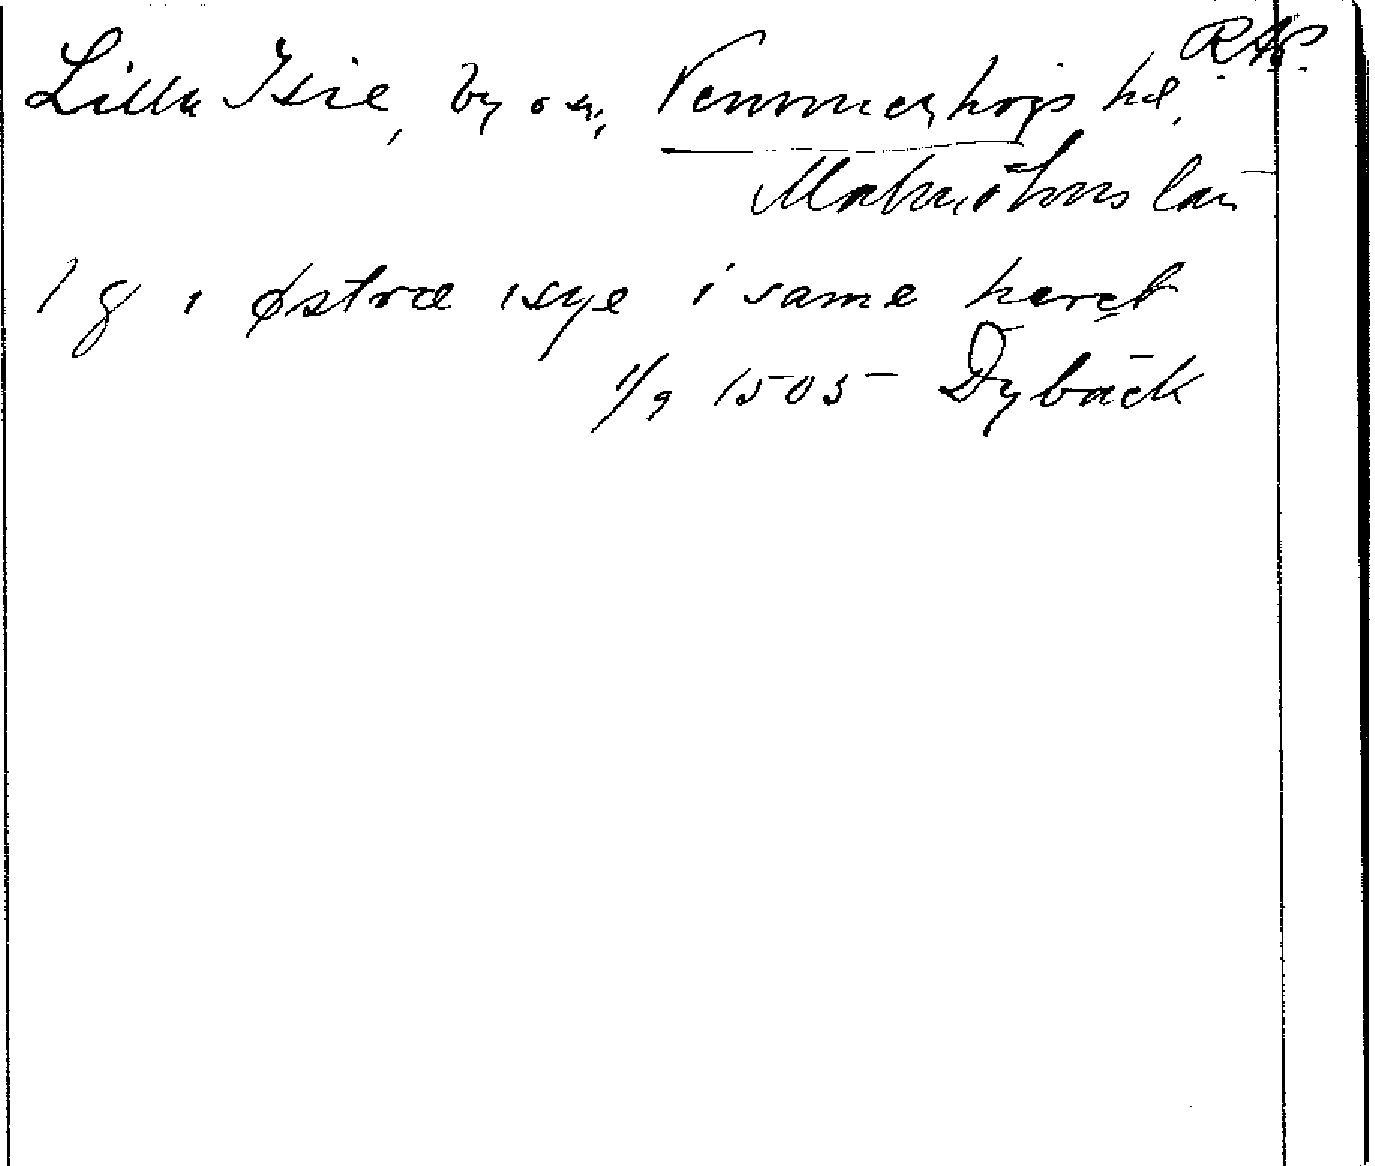 R.A.P.
Lilla Isie, by o sn, Vemmenhögs hd,
Malmöhus län
1 g i østræ isye i same heret
1/9 1505 Dybäck